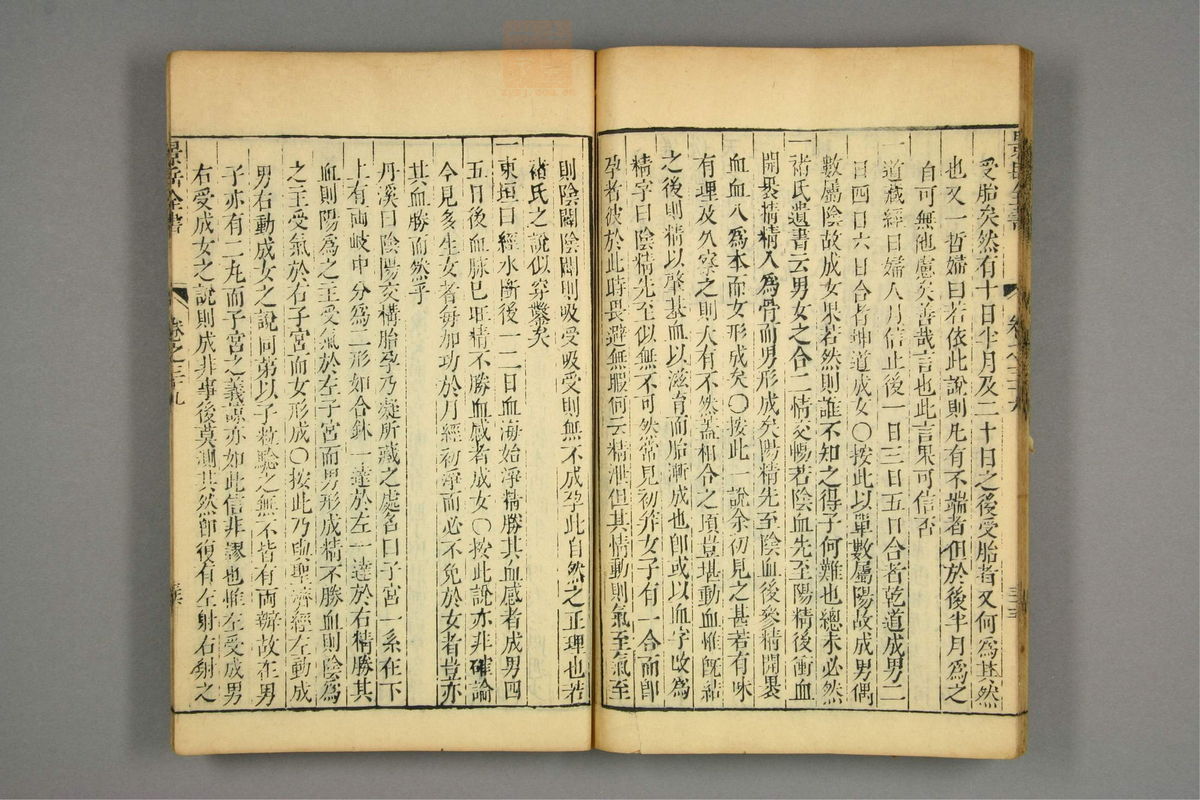 受胎矣然有十日半月及二十日之後受胎者又何為其然
也又一哲婦曰若依此說則凡有不端者但於後半月為之
自可無他慮矣善哉言也此言果可信否
一道藏經曰婦人月信止後一日三日五日合者乾道成男二
日四日六日合者坤道成女○按此以單數屬陽故成男偶
數屬陰故成女果若然則誰不知之得子何難也總未必然
一褚氏遺書云男女之合二情交暢若陰血先至陽精後衝血
開裹精精入為骨而男形成矣陽精先至陰血後參精開裹
血血入為本而女形成矣○按此一說余初見之甚若有味
有理及久察之則大有不然蓋相合之頃豈堪動血惟既結
之後則精以肇基血以滋育而胎漸成也即或以血字改為
精字曰陰精先至似無不可然常見初笄女子有一合而即
孕者彼於此時畏避無暇何云精泄但其情動則氣至氣至
則陰闢陰闢則吸受吸受則無不成孕此自然之正理也若
褚氏之說似穿鑿矣
一東垣曰經水斷後一二日血海始淨精勝其血感者成男四
五日後血脉已旺精不勝血感者成女○按此說亦非確論
今見多生女者每加功於月經初淨而必不免於女者豈亦
其血勝而然乎
丹溪曰陰陽交構胎孕乃凝所藏之處名曰子宮一系在下
上有兩岐中分為二形如合鉢一達於左一達於右精勝其
血則陽為之主受氣於左子宮而男形成精不勝血則陰為
之主受氣於右子宮而女形成○按此乃與聖濟經左動成
男右動成女之說同第以子粒驗之無不皆有兩瓣故在男
子亦有二丸而子宮之義諒亦如此信非謬也惟左受成男
右受成女之說則成非事後莫測其然即復有左射右射之
景岳全書
卷之三十九